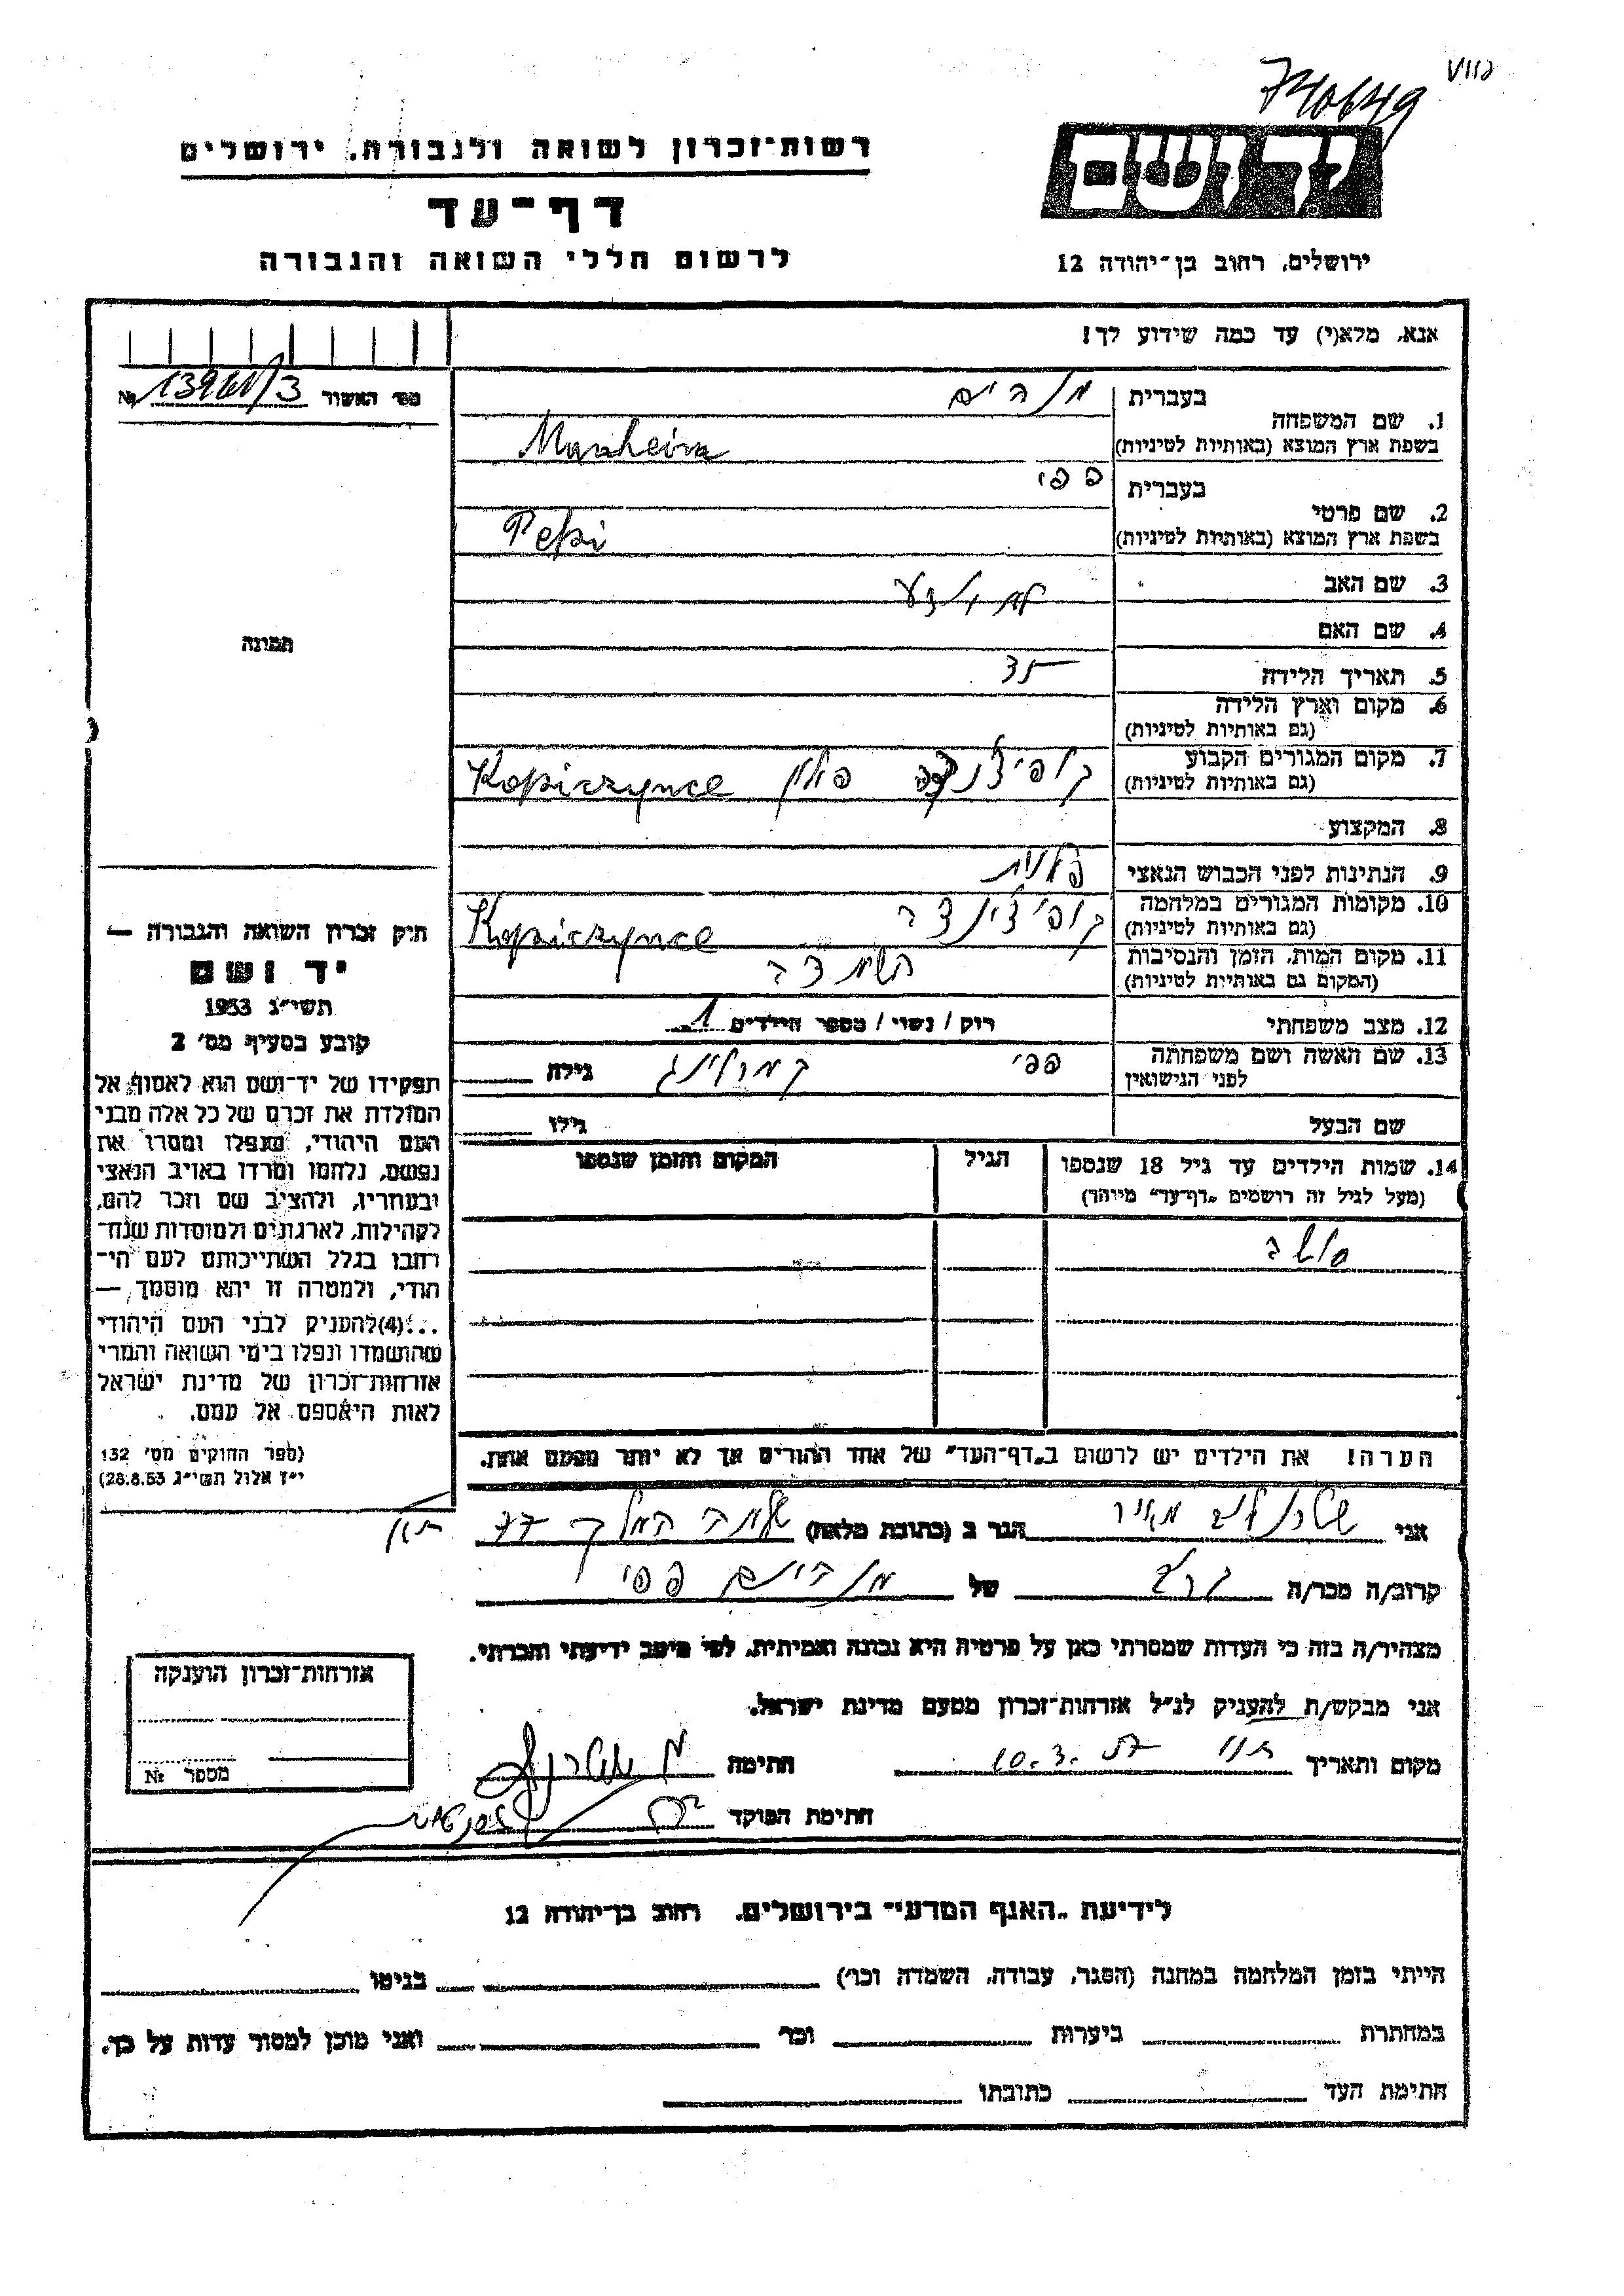 רשות־זכרון לשואה ולגבורה, ירושלים
דף־עד
לרשום חללי השואה והגבורה
יד ושם
ירושלים, רחוב בן־יהודה 12
אנא, מלא(י) עד כמה שידוע לך!
מס׳ האשור №
1. שם המשפחה
בעברית מנהיים
בשפת ארץ המוצא (באותיות לטיניות) Manheim
2. שם פרטי
בעברית פפי
בשפת ארץ המוצא (באותיות לטיניות) Pepi
3. שם האב
4. שם האם
5. תאריך הלידה
6. מקום וארץ הלידה
(גם באותיות לטיניות)
7. מקום המגורים הקבוע
(גם באותיות לטיניות) קופיצ׳נצה פולין Kopiczynce
8. המקצוע
9. הנתינות לפני הכבוש הנאצי פולנית
10. מקומות המגורים במלחמה
(גם באותיות לטיניות) קופיצ׳ינצה Kopiczynce
11. מקום המות, הזמן והנסיבות
(המקום גם באותיות לטיניות)
12. מצב משפחתי רוק / נשוי / מספר הילדים 1
13. שם האשה ושם משפחתה
לפני הנישואין פפי גילה
שם הבעל גילו
14. שמות הילדים עד גיל 18 שנספו
(מעל לגיל זה רושמים „דף־עד״ מיוחד)
הגיל
המקום והזמן שנספו
הערה! את הילדים יש לרשום ב„דף־העד״ של אחד ההורים אך לא יותר מפעם אחת.
תמונה
חיק זכרון השואה והגבורה —
יד ושם
תשי״ג 1953
קובע בסעיף מס׳ 2
תפקידו של יד־ושם הוא לאסוף אל
המולדת את זכרם של כל אלה מבני
העם היהודי, שנפלו ומסרו את
נפשם, נלחמו ומרדו באויב הנאצי
ובעוזריו, ולהציב שם וזכר להם,
לקהילות, לארגונים ולמוסדות שנח־
רבו בגלל השתייכותם לעם הי־
הודי, ולמטרה זו יהא מוסמך, —
...(4)להעניק לבני העם היהודי
שהושמדו ונפלו בימי השואה והמרי
אזרחות־זכרון של מדינת ישראל
לאות היאספם אל עמם.
(ספר החוקים מס׳ 132
י״ז אלול תשי״ג 28.8.53)
אני מאיר הגר ב (כתובת מלאה) שלמה המלך 77
קרוב/ה מכר/ה של מנהיים פפי
מצהיר/ה בזה כי העדות שמסרתי כאן על פרטיה היא נכונה ואמיתית, לפי מיטב ידיעתי והכרתי.
אני מבקש/ת להעניק לנ״ל אזרחות־זכרון מטעם מדינת ישראל.
מקום ותאריך 10.3. חתימה
חתימת הפוקד
אזרחות־זכרון הוענקה
מספר №
לידיעת „האגף המדעי״ בירושלים. רחוב בן־יהודה 12
הייתי בזמן המלחמה במחנה (הסגר, עבודה, השמדה וכו׳) בגיטו
במחתרת ביערות וכו׳ ואני מוכן למסור עדות על כך.
חתימת העד כתובתו